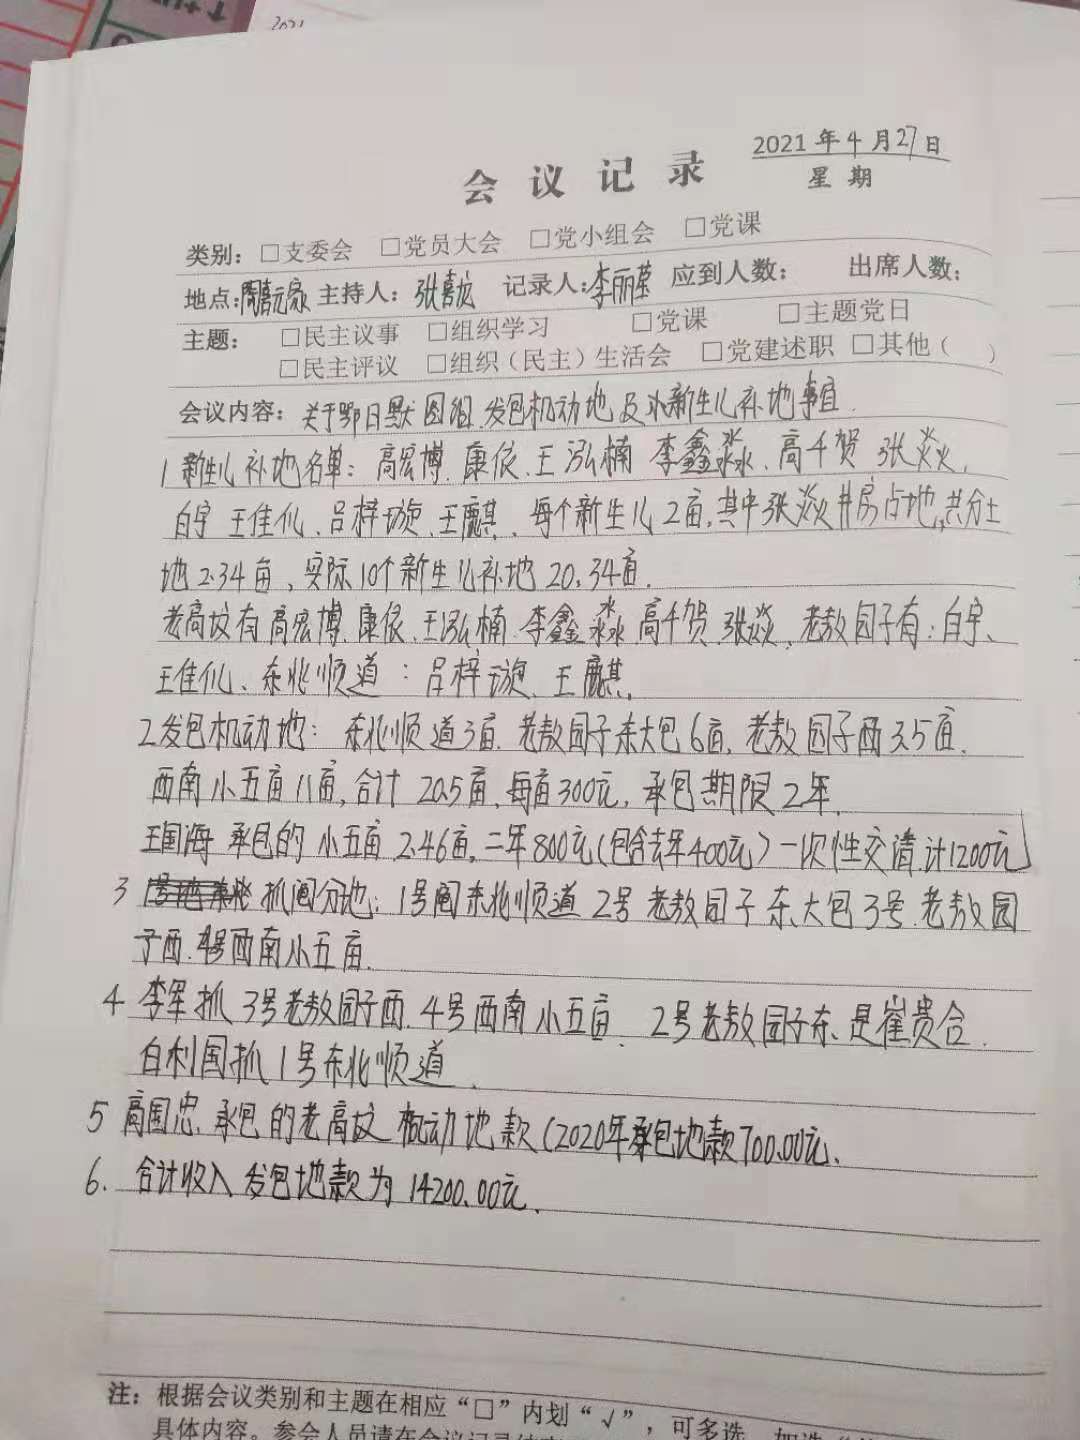 2021
2021年4月27日
会议记录
星期
类别：□支委会 □党员大会 □党小组会 □党课
地点：家 主持人：张嘉 记录人：李丽莹 应到人数： 出席人数：
主题： □民主议事 □组织学习 □党课 □主题党日
□民主评议 □组织（民主）生活会 □党建述职 □其他（ ）
会议内容：关于鄂日默图组.发包机动地及水新生儿补地事宜.
1 新生儿补地名单：高宏博.康依.王泓楠 李鑫淼.高千贺 张焱.
白宇 王佳仪、吕梓璇.王麒.每个新生儿2亩,其中张焱井房占地,共分土
地2.34亩,实际10个新生儿补地20.34亩.
老高坟有高宏博.康依.王泓楠.李鑫淼.高千贺.张焱.老敖园子有:白宇、
王佳仪、东北顺道:吕梓璇.王麒.
2发包机动地:东北顺道3亩.老敖园子东大包6亩,老敖园子西3.5亩.
西南小五亩11亩,合计20.5亩,每亩300元,承包期限2年.
王国海 承包的小五亩2.46亩,二年800元(包含去年400元)一次性交清.计1200元
3 抓阄分地:1号阄东北顺道 2号老敖园子东大包3号.老敖园
子西.4号西南小五亩.
4 李军抓3号老敖园子西.4号西南小五亩.2号老敖园子东.是崔贵合.
白利国抓1号东北顺道.
5 高国忠.承包的老高坟机动地款(2020年承包地款700.00元.
6.合计收入发包地款为14200.00元.
注：根据会议类别和主题在相应“□”内划“√”，可多选，如选“
具体内容。参会人员请在会议记录